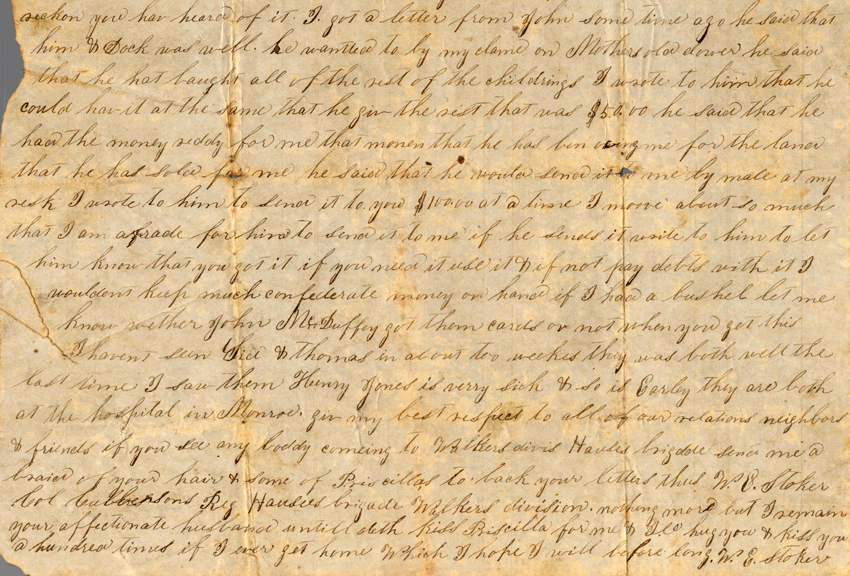 reckon you hav heard of it I got a letter from John some time ago he said that
him & Dock was well. he wanted to by my clame on Mothers old dower he said
that he hat baught all of the rest of the childrings I wrote to him that he
could hav it at the same that he giv the rest that was $50.00 he said that he
had the money reddy for me that monen that he has ben owing me for the land
that he has sold for me he said that he would send it to me by male at my
resk I wrote to him to send it to you $100.00 at a time I moove about so much
that I am afrade for him to send it to me if he sends it write to him to let
him know that you got it if you need it use it & if not pay debts with it I
wouldent keep much confederate money on hand if I had a bushel let me
know wether John McDuffey got them cards or not when you got this
I havent seen & thomas in about too weekes they was both well the
last time I saw them Henry Jones is verry sick & so is Earley they are both
at the hospital in Monroe. giv my best respect to all of our relations neighbors
& friends if you see any boddy comeing to Walkers divis Hawses brigade send me a
braid of your hair & some of Priscillas to. back your letters thus W. E. Stoker
Col Reg Hawses brigade Walkers division. nothing more but I remain
your affectionate husband untill deth kiss Priscilla for me & I le hug you & kiss you
a hundred times if I ever get home Which I hope I will before long. W. E. Stoker